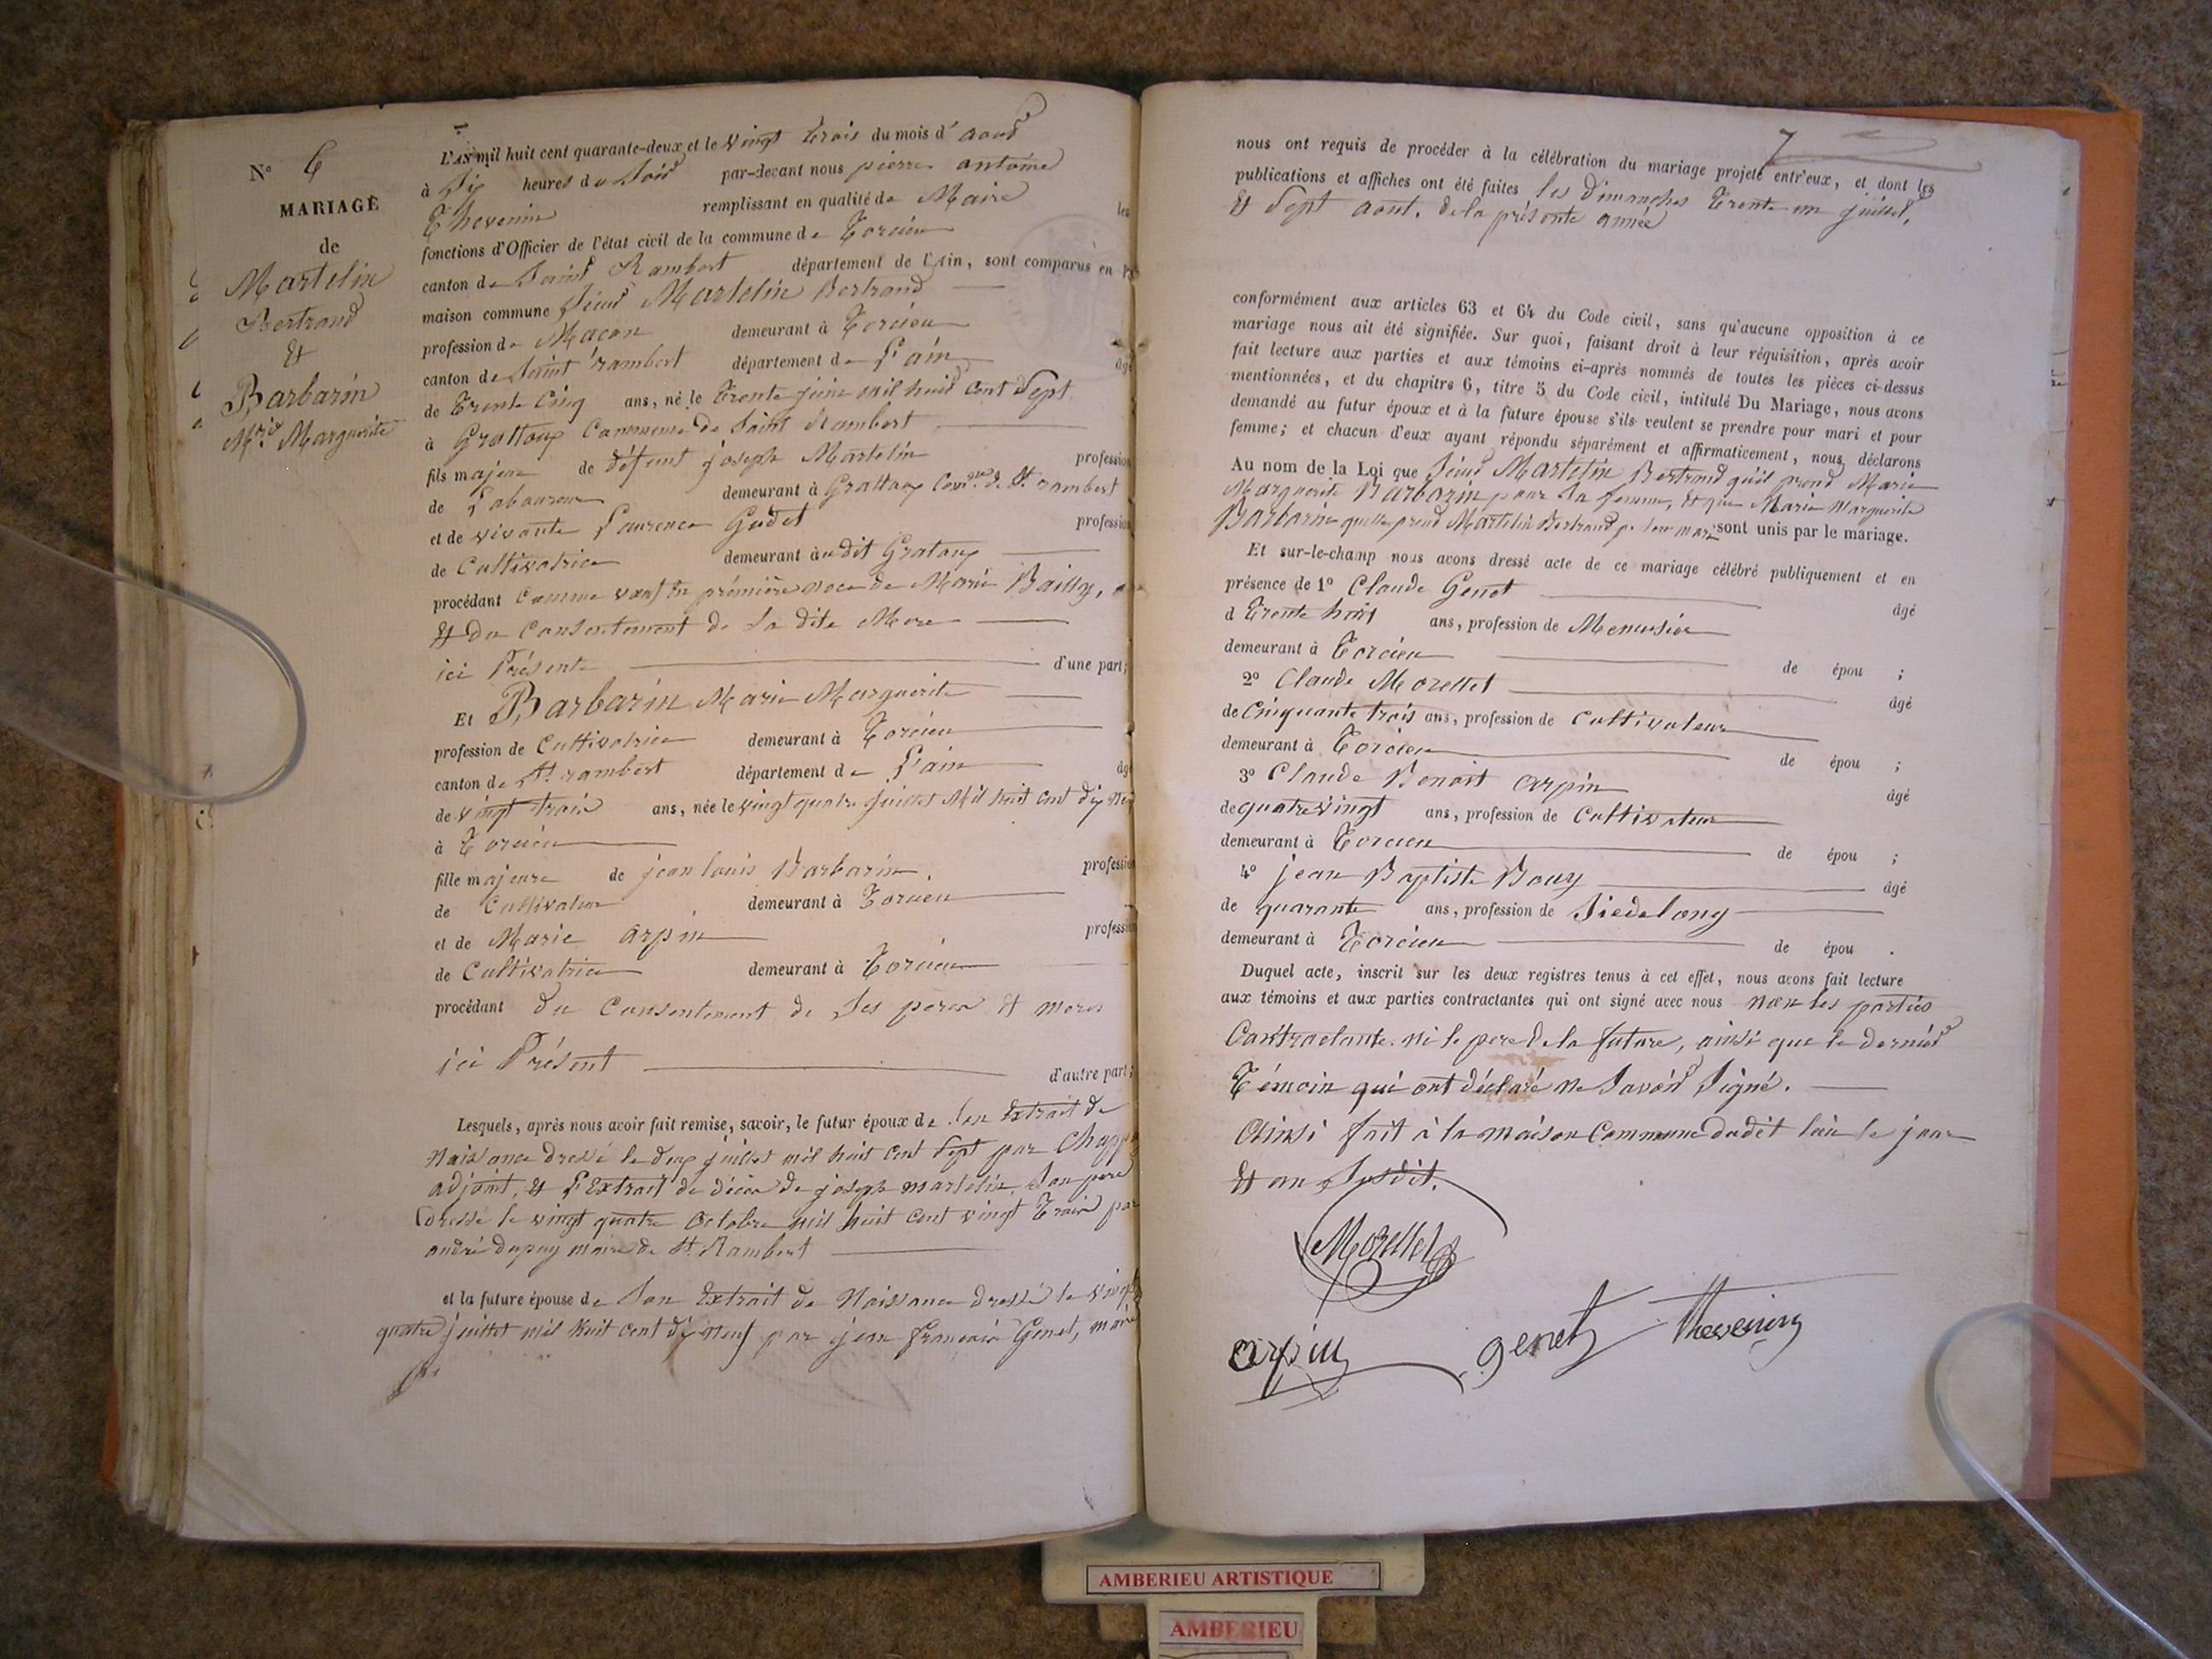 N° 6
MARIAGE
de
Martelin
Bertrand
Et
Barbarin
Mrie Marguerite
L'AN mil huit cent quarante-deux et le vingt trois du mois d'aout
à Six heures du Soir par-devant nous pierre antoine
Thevenin remplissant en qualité de Maire les
fonctions d'Officier de l'état civil de la commune de Torcieu
canton de Saint Rambert département de l'Ain, sont comparus en
maison commune Sieur Martelin Bertrand
profession de Maçon demeurant à Torcieu
canton de Saint rambert département de l'ain âgé
de Trente Cinq ans, né le Trente juin mil huit cent Sept
à Grattoux Commune de Saint Rambert
fils majeur de défunt joseph Martelin profession
de Laboureur demeurant à Grattoux Comune de St. rambert
et de vivante Laurence Godet profession
de Cultivatrice demeurant audit Gratoux
procédant Comme en première noce de Marie Bailly,
Et du Consentement de la dite Mere
ici Présente d'une part;
Et Barbarin Marie Marguerite
profession de Cultivatrice demeurant à Torcieu
canton de St. rambert département de L'ain âgé
de vingt trois ans, née le vingt quatre Juillet Mil huit cent dix neuf
à Torcieu
fille majeure de jean louis Barbarin profession
de Cultivateur demeurant à Torcieu
et de Marie arpin profession
de Cultivatrice demeurant à Torcieu
procédant du Consentement de Ses peres Et meres
ici Présent d'autre part;
Lesquels, après nous avoir fait remise, savoir, le futur époux de Son Extrait de
Naissance dressé le deux juillet mil huit cent Sept par
adjoint, Et L'Extrait de décès de joseph martelin Son pere
dressé le vingt quatre Octobre mil huit cent vingt Trois par
andré dupuy maire de St. Rambert
et la future épouse de Son Extrait de Naissance dressé le vingt
quatre juillet mil huit cent dix neuf par jean françois Genet, maire
7
nous ont requis de procéder à la célébration du mariage projeté entr'eux, et dont les
publications et affiches ont été faites les dimanches Trente un juillet,
Et Sept aout. de la présente année
conformément aux articles 63 et 64 du Code civil, sans qu'aucune opposition à ce
mariage nous ait été signifiée. Sur quoi, faisant droit à leur réquisition, après avoir
fait lecture aux parties et aux témoins ci-après nommés de toutes les pièces ci-dessus
mentionnées, et du chapitre 6, titre 5 du Code civil, intitulé Du Mariage, nous avons
demandé au futur époux et à la future épouse s'ils veulent se prendre pour mari et pour
femme; et chacun d'eux ayant répondu séparément et affirmativement, nous déclarons
Au nom de la Loi que Sieur Martelin Bertrand qu'il prend Marie
Marguerite Barbarin pour Sa femme, Et que Marie Marguerite
Barbarin quelle prend Martelin Bertrand p. Son mari sont unis par le mariage.
Et sur-le-champ nous avons dressé acte de ce mariage célébré publiquement et en
présence de 1° Claude Genet âgé
d Trente huit ans, profession de Menuisier
demeurant à Torcieu de épou ;
2° Claude Morellet âgé
de Cinquante trois ans, profession de Cultivateur
demeurant à Torcieu de épou ;
3° Claude Benoit arpin âgé
de quatre vingt ans, profession de Cultivateur
demeurant à Torcieu de épou ;
4° jean Baptiste Bouy âgé
de quarante ans, profession de Siedelong
demeurant à Torcieu de épou .
Duquel acte, inscrit sur les deux registres tenus à cet effet, nous avons fait lecture
aux témoins et aux parties contractantes qui ont signé avec nous non les parties
Contractante. ni le pere de la future, ainsi que le dernier
Témoin qui ont déclaré ne Savoir Signé.
Ainsi fait à la maison Commune dudit lieu le jour
Et an Susdit.
Morellet
arpin genet Thevenin
AMBERIEU ARTISTIQUE
AMBERIEU